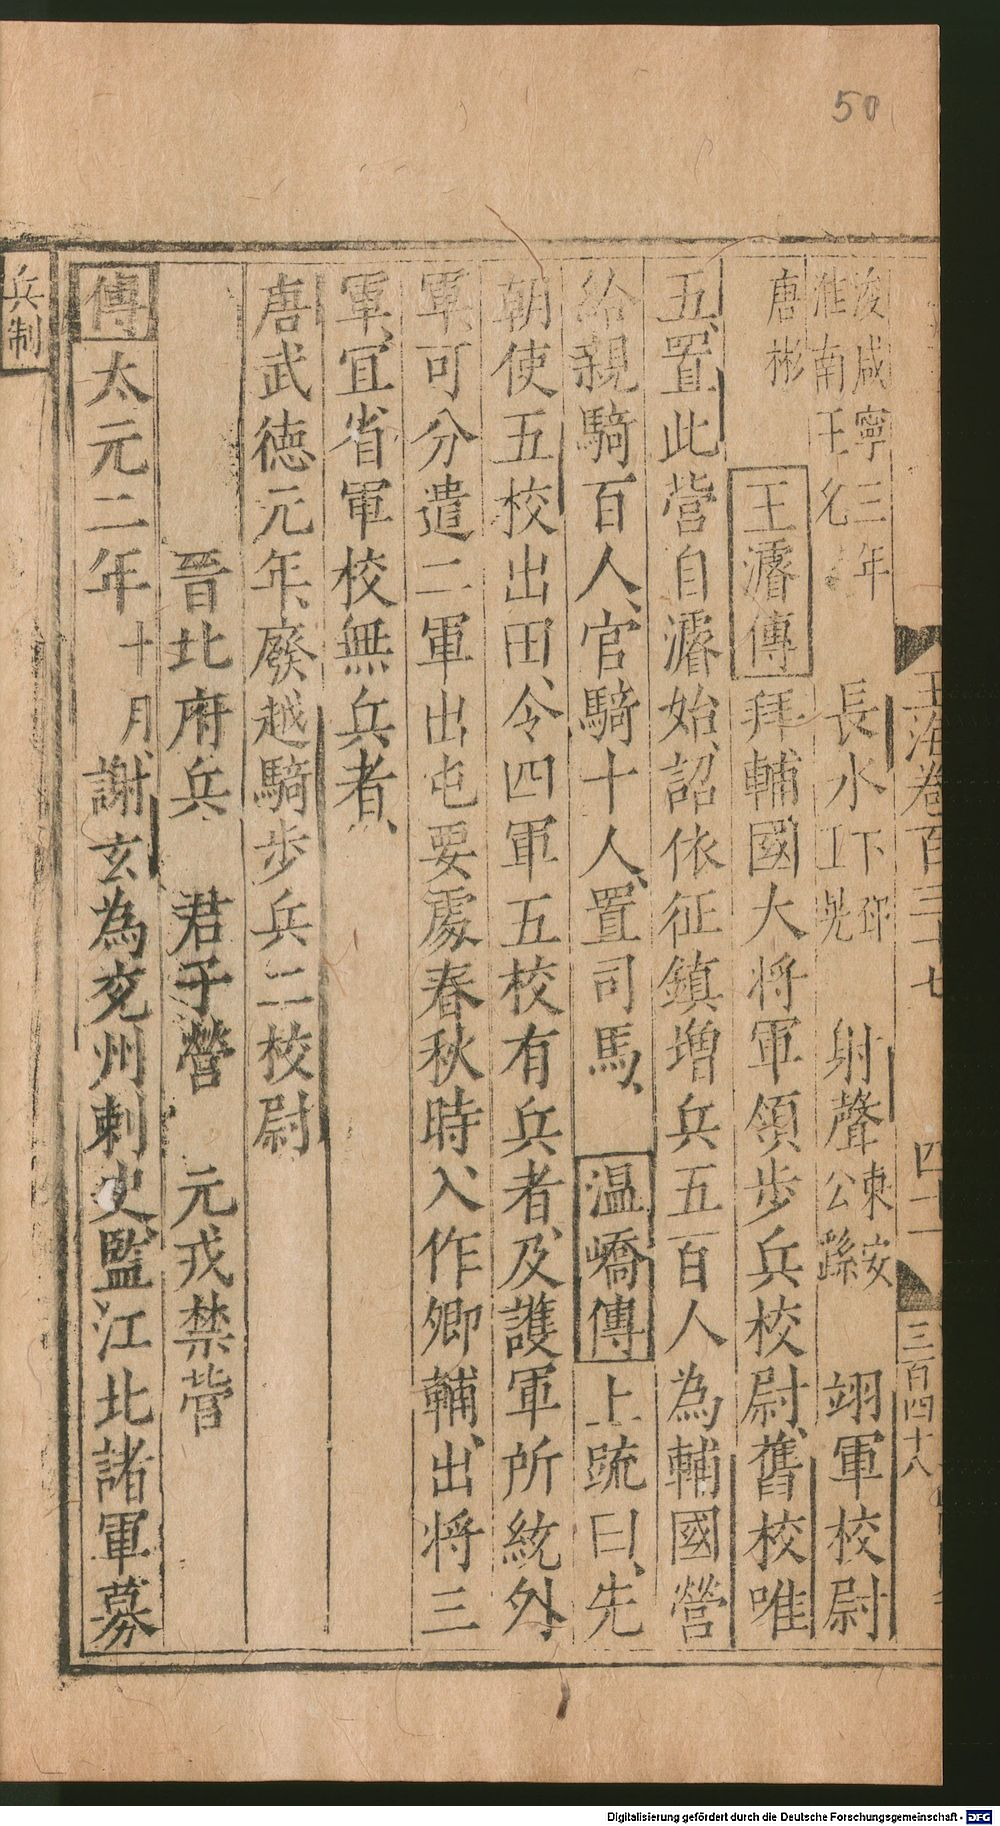 50
玉海卷百三十七 四十一 三百四十八
浚咸寧三年
淮南王允 長水 下邳
王晃 射聲 東安
公繇 翊軍校尉
唐彬 王濬傳 拜輔國大将軍領步兵校尉舊校唯
五置此營自濬始詔依征鎮增兵五百人為輔國營
給親騎百人官騎十人置司馬 温嶠傳 上䟽曰先
朝使五校出田令四軍五校有兵者及護軍所統外
軍可分遣二軍出屯要處春秋時入作卿輔出将三
軍宜省軍校無兵者
唐武德元年廢越騎步兵二校尉
晋北府兵 君子營 元戎禁營
傳 太元二年十月謝玄為兖州刺史監江北諸軍募
兵制
Digitalisierung gefördert durch die Deutsche Forschungsgemeinschaft - DFG